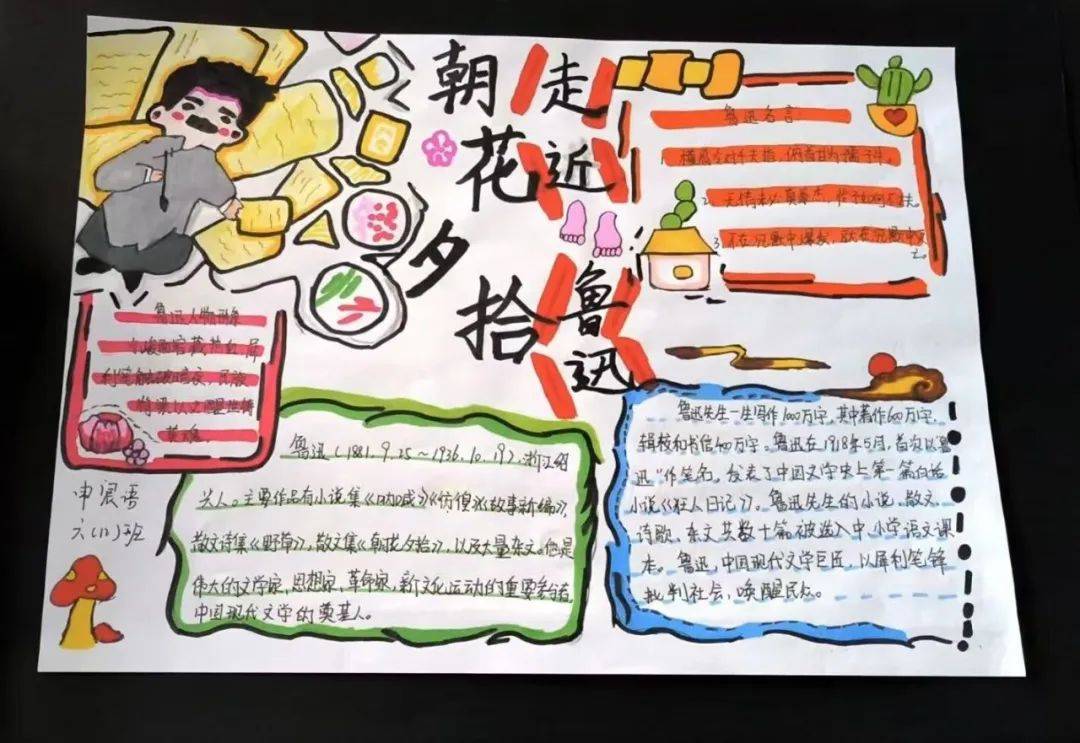 朝花夕拾
走近鲁迅
鲁迅名言
1. 横眉冷对千夫指，俯首甘为孺子牛。
2. 无情未必真豪杰，怜子如何不丈夫。
3. 不在沉默中爆发，就在沉默中灭
亡。
鲁迅人物形象
冷峻面容藏热血，犀
利笔触破暗夜，民族
脊梁以文醒世铸
英魂。
申浪语
六(12)班
鲁迅(1881.9.25～1936.10.19)，浙江绍
兴人。主要作品有小说集《呐喊》《彷徨》《故事新编》，
散文诗集《野草》，散文集《朝花夕拾》，以及大量杂文。他是
伟大的文学家，思想家，革命家，新文化运动的重要参与者，
中国现代文学的奠基人。
鲁迅先生一生写作1000万字，其中著作600万字，
辑校和书信400万字。鲁迅在1918年5月，首次以“鲁
迅”作笔名，发表了中国文学史上第一篇白话
小说《狂人日记》。鲁迅先生的小说，散文，
诗歌，杂文共数十篇被选入中、小学语文课
本。鲁迅，中国现代文学巨匠，以犀利笔锋
批判社会，唤醒民众。